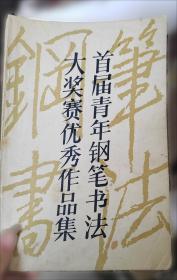 首届青年钢笔书法
大奖赛优秀作品集
鋼筆
書法